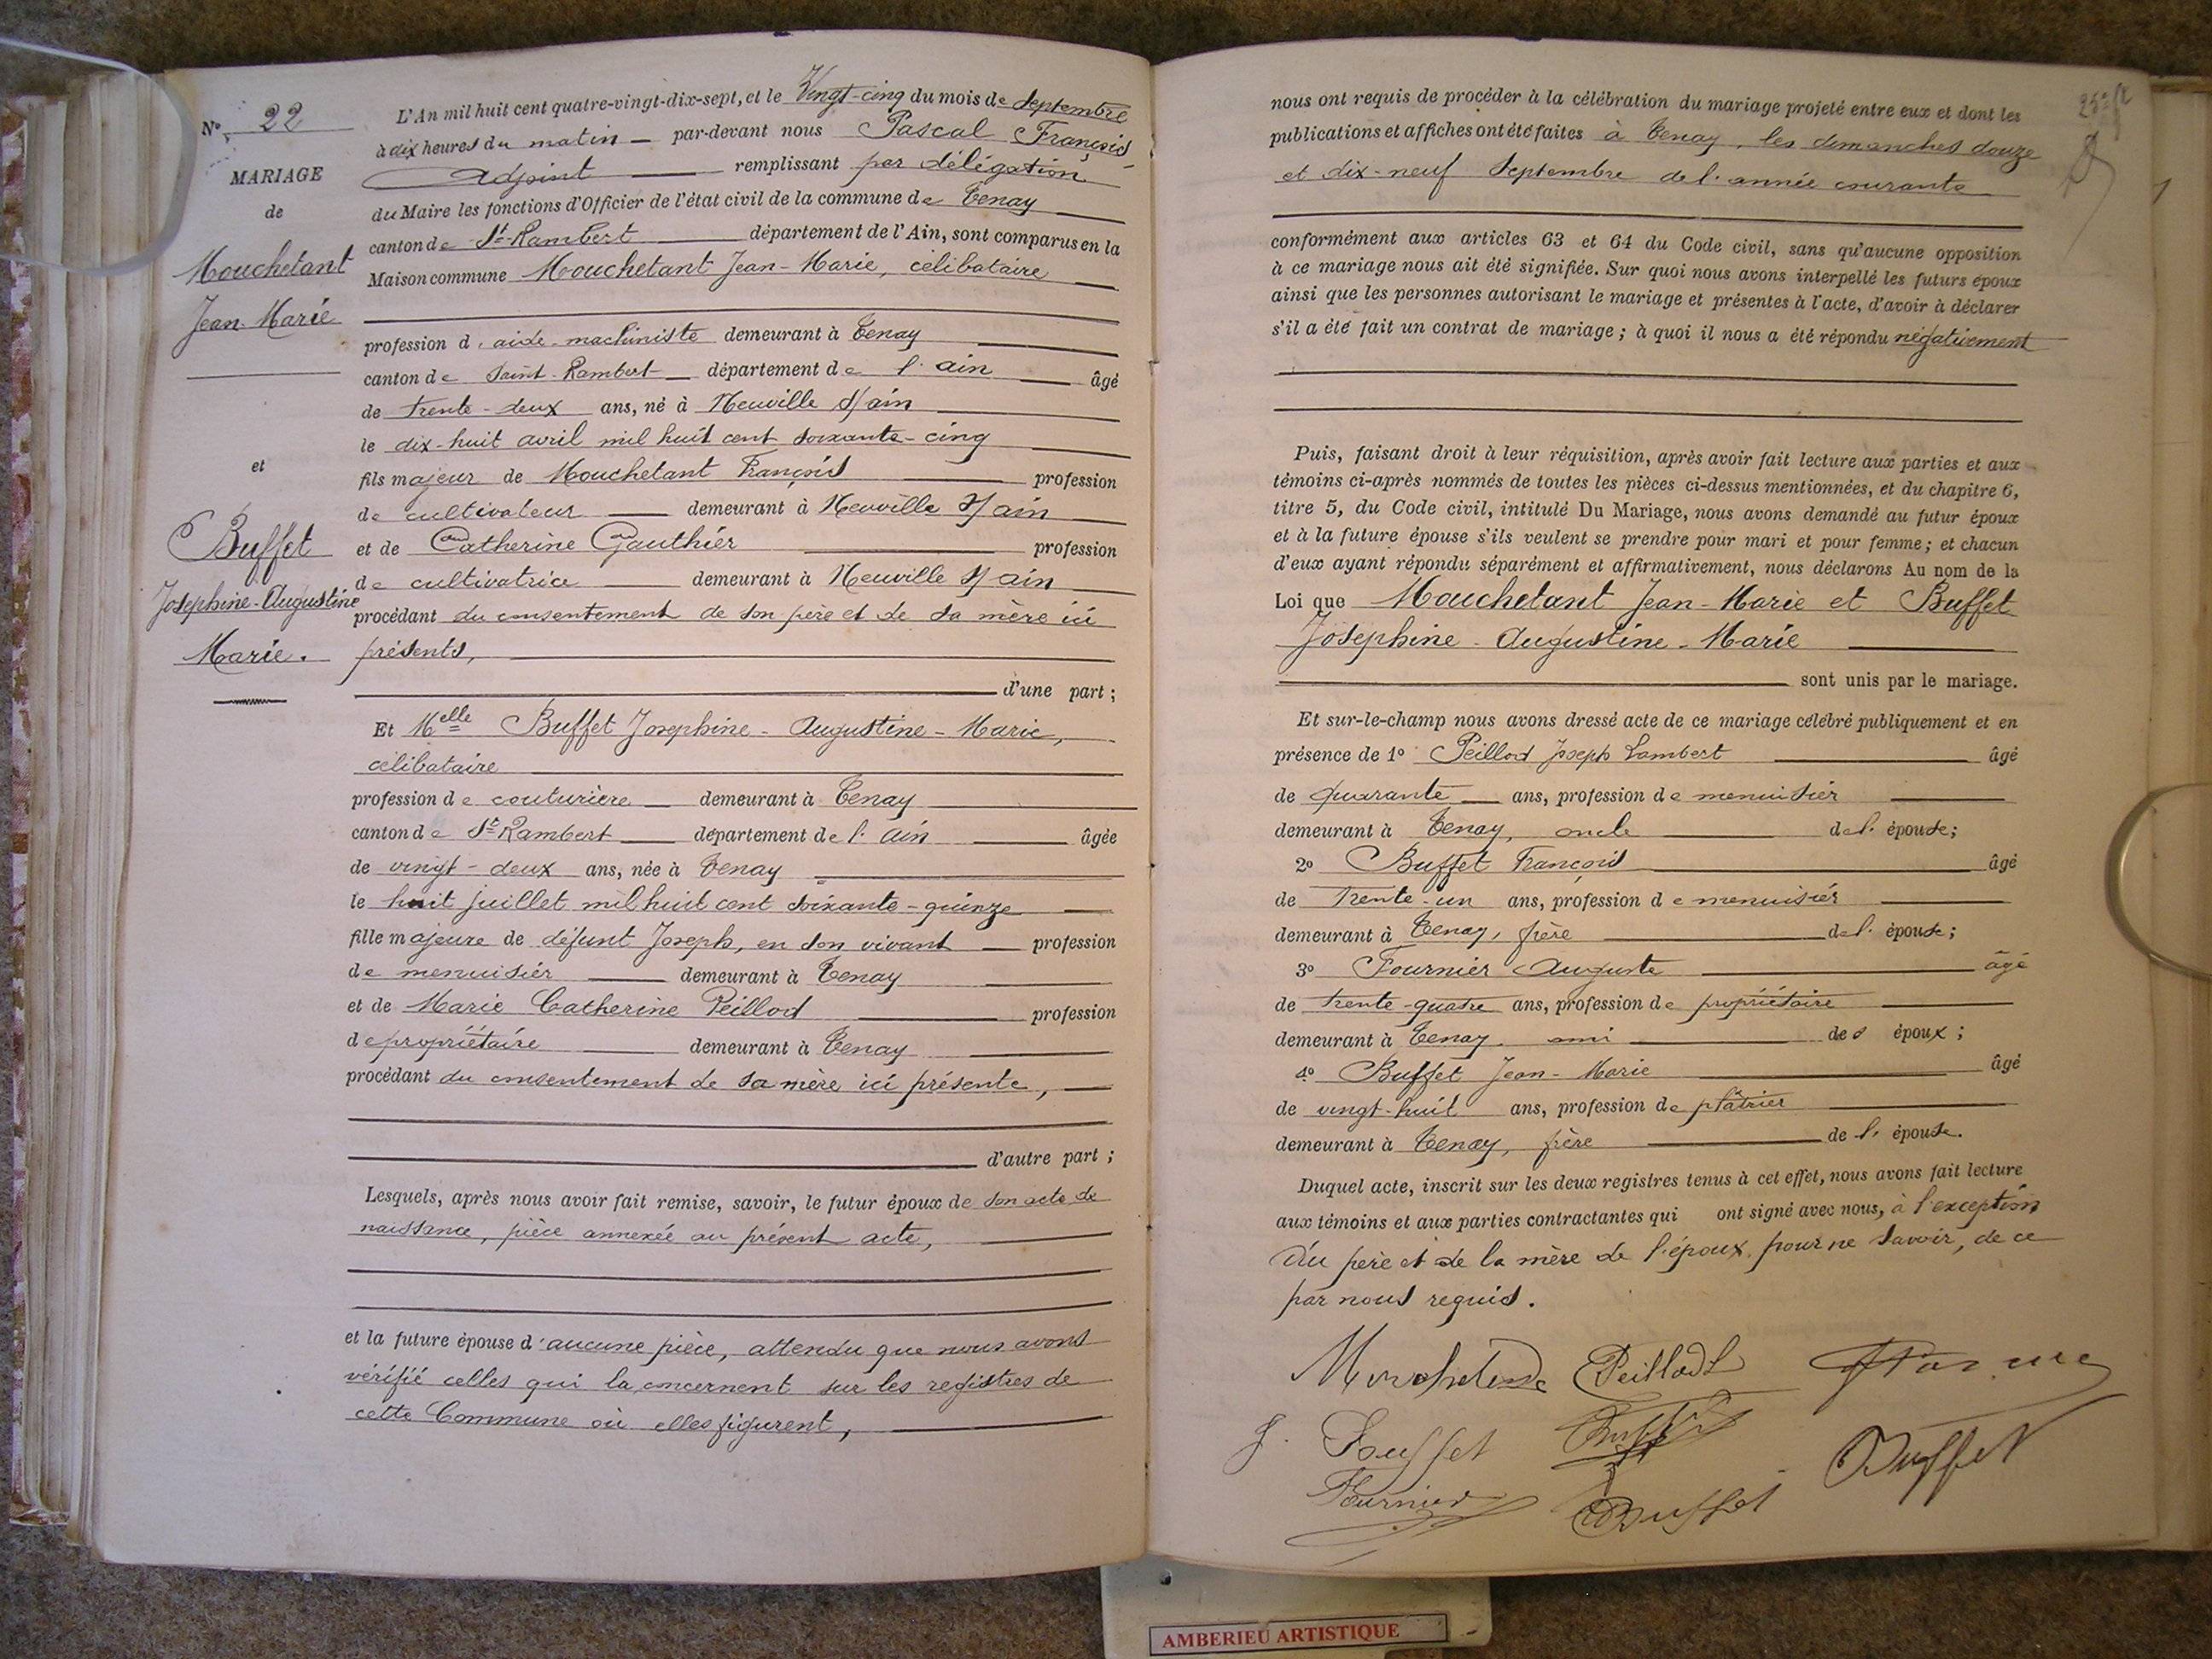 N° 22
MARIAGE
de
Mouchetant
Jean-Marie
et
Buffet
Josephine-Augustine
Marie.
L'An mil huit cent quatre-vingt-dix-sept, et le Vingt-cinq du mois de Septembre
à dix heures du matin par-devant nous Pascal François
Adjoint remplissant par délégation
du Maire les fonctions d'Officier de l'état civil de la commune de Tenay
canton de St-Rambert département de l'Ain, sont comparus en la
Maison commune Mouchetant Jean-Marie, célibataire
profession d'aide-machiniste demeurant à Tenay
canton de Saint-Rambert département de l'ain âgé
de trente-deux ans, né à Neuville s/ain
le dix-huit avril mil huit cent soixante-cinq
fils majeur de Mouchetant François profession
de cultivateur demeurant à Neuville s/ain
et de Catherine Gauthier profession
de cultivatrice demeurant à Neuville s/ain
procédant du consentement de son père et de sa mère ici
présents,
d'une part ;
Et Melle Buffet Josephine-Augustine-Marie,
célibataire
profession de couturière demeurant à Tenay
canton de St-Rambert département de l'ain âgée
de vingt-deux ans, née à Tenay
le huit juillet mil huit cent soixante-quinze
fille majeure de défunt Joseph, en son vivant profession
de menuisier demeurant à Tenay
et de Marie Catherine Peillod profession
de propriétaire demeurant à Tenay
procédant du consentement de sa mère ici présente,
d'autre part ;
Lesquels, après nous avoir fait remise, savoir, le futur époux de son acte de
naissance, pièce annexée au présent acte,
et la future épouse d'aucune pièce, attendu que nous avons
vérifié celles qui la concernent sur les registres de
cette Commune où elles figurent,
nous ont requis de procéder à la célébration du mariage projeté entre eux et dont les
publications et affiches ont été faites à Tenay, les dimanches douze
et dix-neuf Septembre de l'année courante
conformément aux articles 63 et 64 du Code civil, sans qu'aucune opposition
à ce mariage nous ait été signifiée. Sur quoi nous avons interpellé les futurs époux
ainsi que les personnes autorisant le mariage et présentes à l'acte, d'avoir à déclarer
s'il a été fait un contrat de mariage ; à quoi il nous a été répondu négativement
Puis, faisant droit à leur réquisition, après avoir fait lecture aux parties et aux
témoins ci-après nommés de toutes les pièces ci-dessus mentionnées, et du chapitre 6,
titre 5, du Code civil, intitulé Du Mariage, nous avons demandé au futur époux
et à la future épouse s'ils veulent se prendre pour mari et pour femme ; et chacun
d'eux ayant répondu séparément et affirmativement, nous déclarons Au nom de la
Loi que Mouchetant Jean-Marie et Buffet
Josephine-Augustine-Marie
sont unis par le mariage.
Et sur-le-champ nous avons dressé acte de ce mariage célébré publiquement et en
présence de 1° Peillod Joseph Lambert âgé
de quarante ans, profession de menuisier
demeurant à Tenay, oncle de l'épouse ;
2° Buffet François âgé
de trente-un ans, profession de menuisier
demeurant à Tenay, frère de l'épouse ;
3° Fournier Auguste âgé
de trente-quatre ans, profession de propriétaire
demeurant à Tenay ami des époux ;
4° Buffet Jean-Marie âgé
de vingt-huit ans, profession de plâtrier
demeurant à Tenay, frère de l'épouse.
Duquel acte, inscrit sur les deux registres tenus à cet effet, nous avons fait lecture
aux témoins et aux parties contractantes qui ont signé avec nous, à l'exception
du père et de la mère de l'époux pour ne savoir, de ce
par nous requis.
Peillod
J. Buffet Buffet Buffet
Fournier Buffet
AMBERIEU ARTISTIQUE